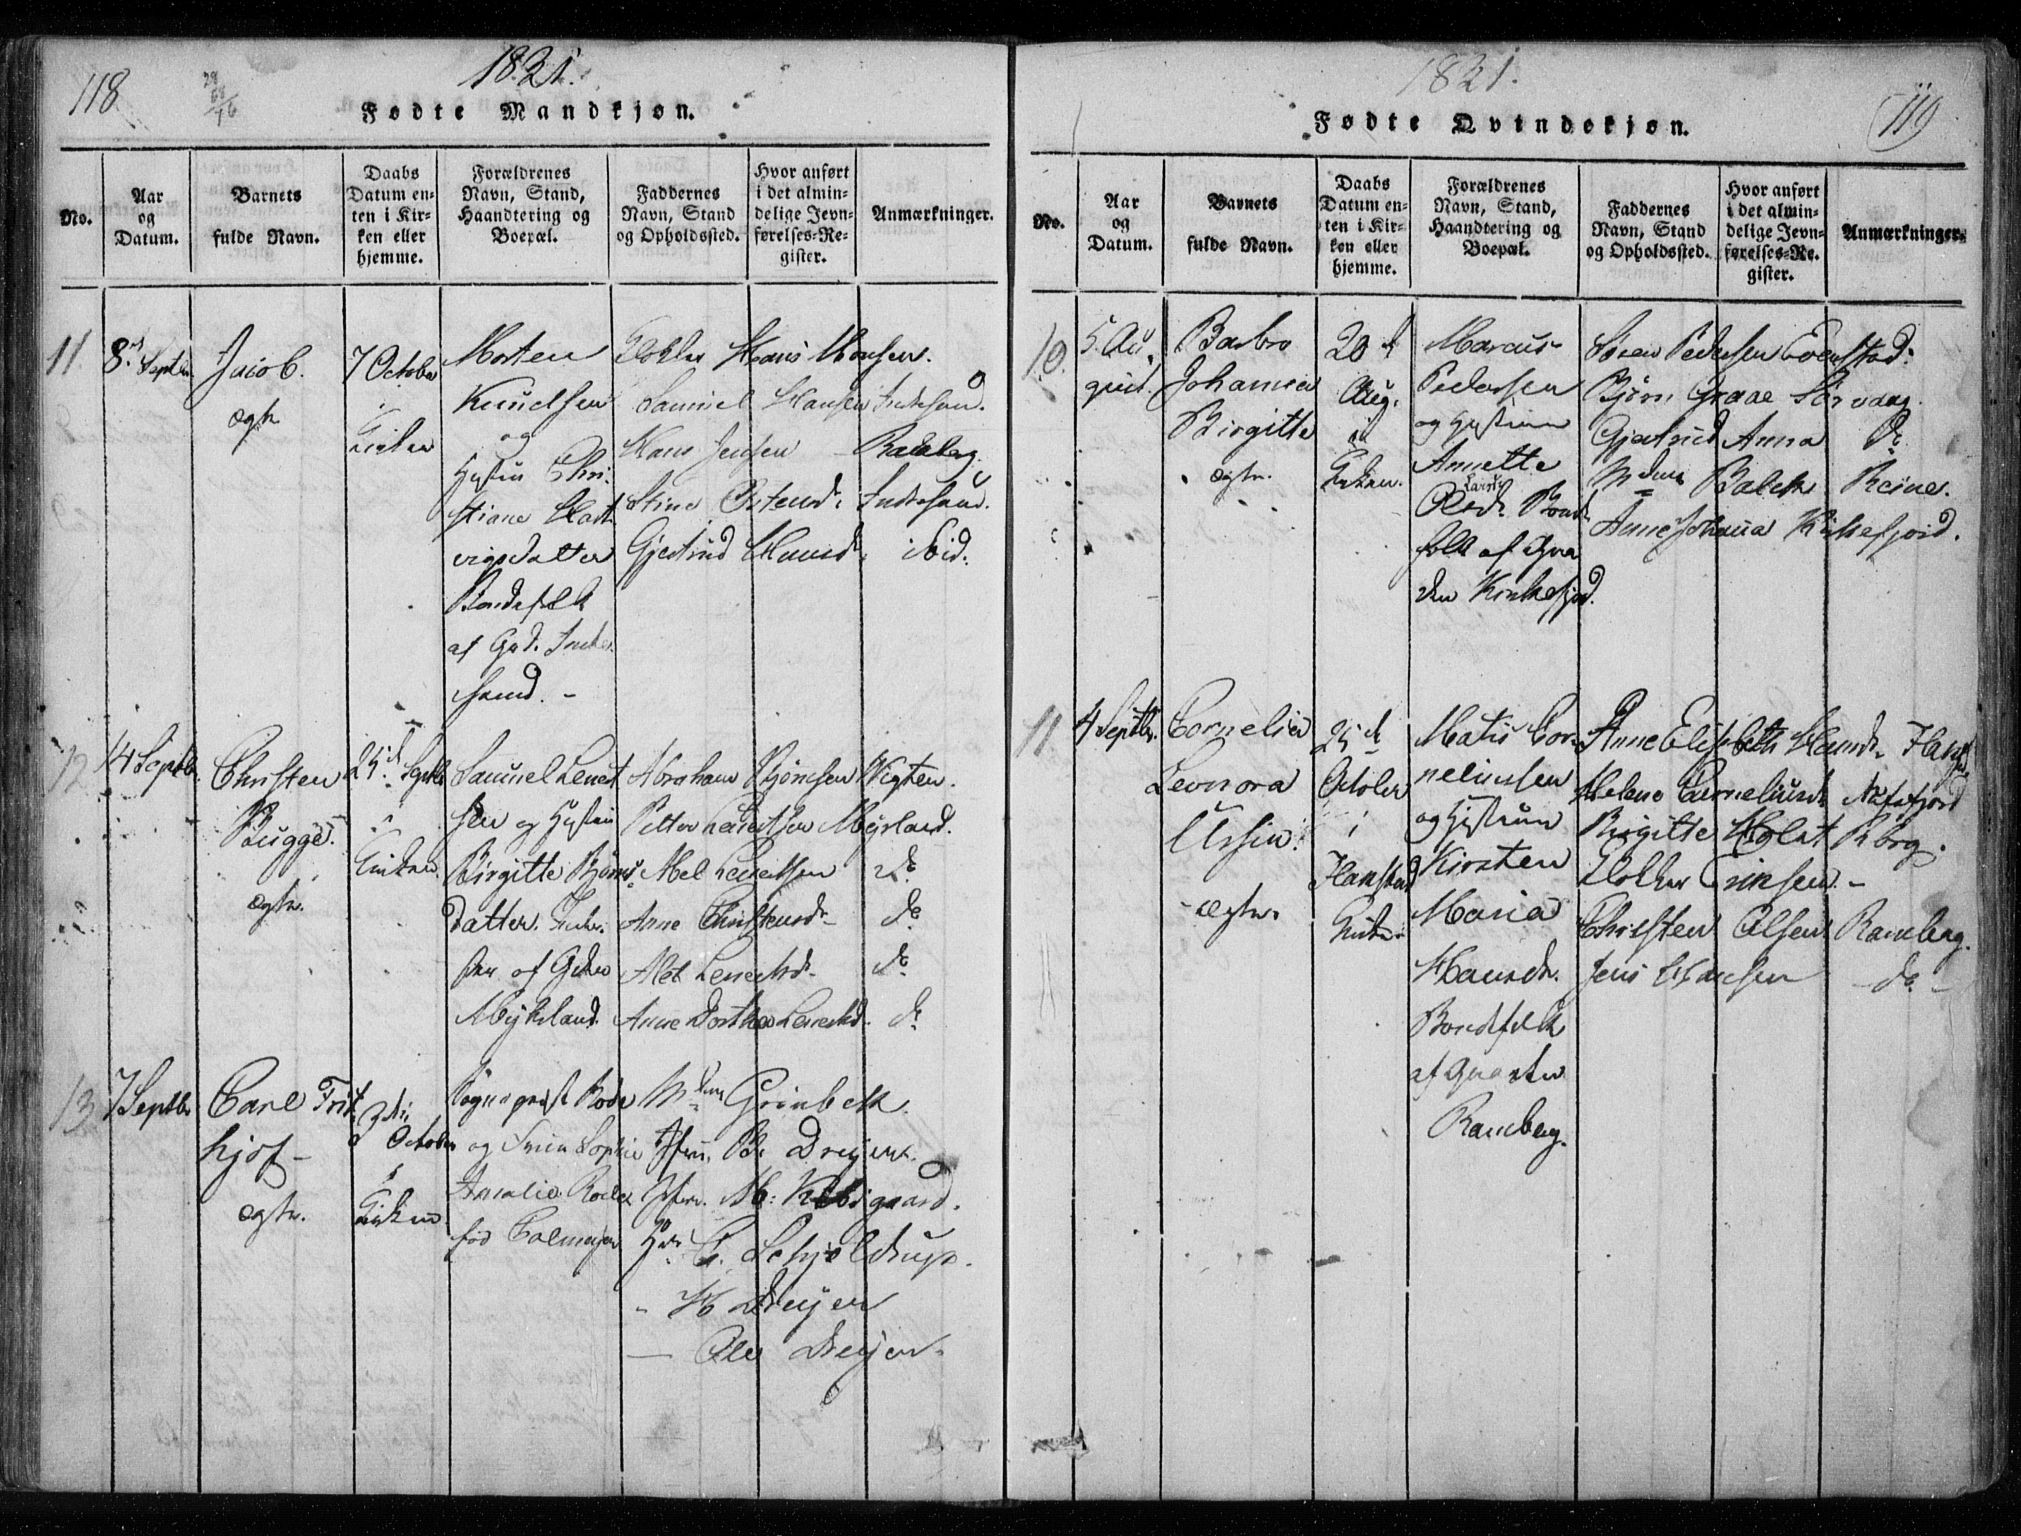 118
1821.
Fødte Mandkjøn.
No.
Aar
og
Datum.
Barnets
fulde Navn.
Daabs
Datum en-
ten i Kir-
ken eller
hjemme.
Forældrenes
Navn, Stand,
Haandtering og
Boepæl.
Faddernes
Navn, Stand
og Opholdssted.
Hvor anført
i det almin-
delige Jevn-
førelses-Re-
gister.
Anmærkninger.
11
8de Septbr
Jacob.
ægte
7 October
i
Kirken
Morten
Knudsen
og
Hustru Chri-
stiane Hart-
vigsdatter
Bondefolk
af Grd. Inder-
sand. -
Klokker Hans Monsen.
Samuel Hansen Indresand.
Hans Jensen - Ramberg.
Stine Ostensdr Indresand.
Gjertrud Hansdr. ibid.
12
14 Septbr.
Christen
Bugge.
ægte.
25d Septbr
i
Kirken
Samuel Lenert
sen og Hustru
Birgitte Bjørns
datter.
af Grden
Myhrland.
Abraham Bjørnsen Wigten.
Petter Lenertsen Myrland.
Abel Lenertsen do
Anne Christensdr do
Alet Lenertsdr. do
Anne Dorthea Lenertsd. do
13
7 Septbr
Carl Frit
hjof -
ægte.
3die
October
i
Kirken
Sogneprest Rode
og Fruen Sophie
Amalia Rode
fød Colmejer
Mdme Grønbech.
Jfru. B. Dreyer.
Jfru. M: Kildgaard.
Hr. C. Schjeldrup.
" H Dreyer
— Ole Dreyer.
1821.
119
Fødte Qvindekjøn.
No.
Aar
og
Datum.
Barnets
fulde Navn.
Daabs
Datum en-
ten i Kir-
ken eller
hjemme.
Forældrenes
Navn, Stand,
Haandtering og
Boepæl.
Faddernes
Navn, Stand
og Opholdssted.
Hvor anført
i det almin-
delige Jevn-
førelses-Re-
gister.
Anmærkninger.
10.
5. Au
gust.
Barbro
Johanna
Birgitte
ægte.
20d
Aug.
i
Kirken.
Marcus
Pedersen
og Hustrue
Annette
Larsdr
Olsdr. Bonde
folk af Gaar
den Kirkefjord.
Søren Pedersen Evenstad.
Bjørn Graae Sørvaag.
Gjertrud Anna do
Mdme Balch Reine.
Anne Johanna Kirkefjord.
11
4 Septbr.
Cornelia
Leonora
Ursin.
ægte.
25d
October
i
Flakstad
Kirke
Matis Cor-
neliussen
og Hustrue
Kirsten
Maria
Hansdr.
Bondefolk
af Gaarden
Ramberg.
Anne Elisabeth Hansdr.
Helene Corneliusdr Napsfjord
Birgitte Holst Borg.
Klokker Erichsen. -
Christen Olsen Ramberg.
Jens Hansen - do -